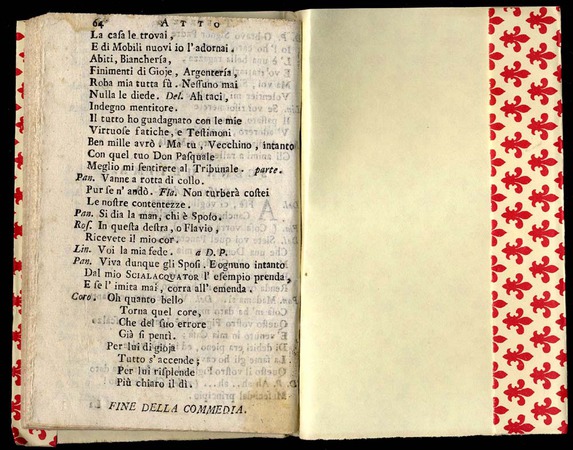 64 ATTO
La casa le trovai,
E di Mobili nuovi io l'adornai.
Abiti, Biancherìa,
Finimenti di Gioje, Argenterìa,
Roba mia tutta fù. Nessuno mai
Nulla le diede. Del. Ah taci,
Indegno mentitore.
Il tutto ho guadagnato con le mie
Virtuose fatiche, e Testimonj
Ben mille avrò; Ma tu, Vecchino, intanto
Con quel tuo Don Pasquale
Meglio mi sentirete al Tribunale. parte.
Pan. Vanne a rotta di collo.
Pur se n'andò. Fla. Non turberà costei
Le nostre contentezze.
Pan. Si dia la man, chi è Sposo.
Ros. In questa destra, o Flavio,
Ricevete il mio cor.
Lin. Voi la mia fede. a D. P.
Pan. Viva dunque gli Sposi. E ognuno intanto
Dal mio SCIALACQUATOR l'esempio prenda,
E se l'imita mai, corra all'emenda.
Coro. Oh quanto bello
Torna quel core,
Che del suo errore
Già si pentì.
Per lui di gioja
Tutto s'accende;
Per lui risplende
Più chiaro il dì.
FINE DELLA COMMEDIA.